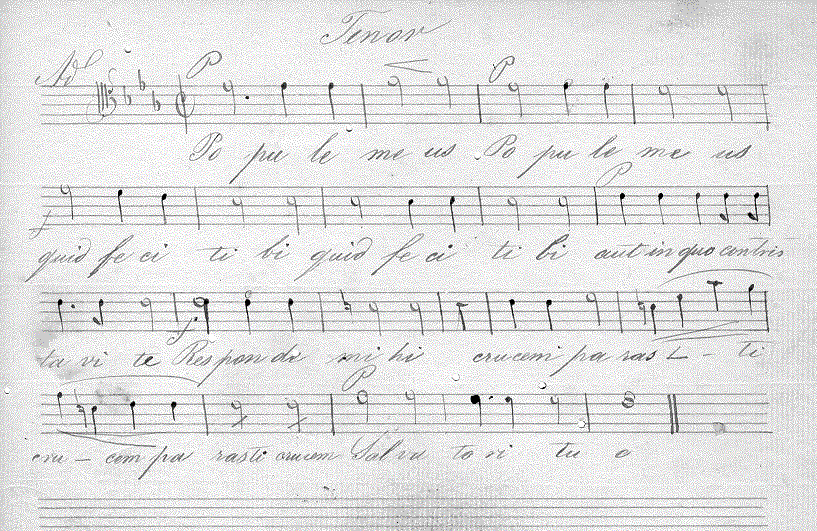 Tenor
Ad.º
P P
Po pu le me us Po pu le me us
P
f
quid fe ci ti bi quid fe ci ti bi aut in quo contris
f.
ta vi te Responde mi hi crucem pa ras - ti
P
cru - cem pa rasti crucem Salva to ri tu o